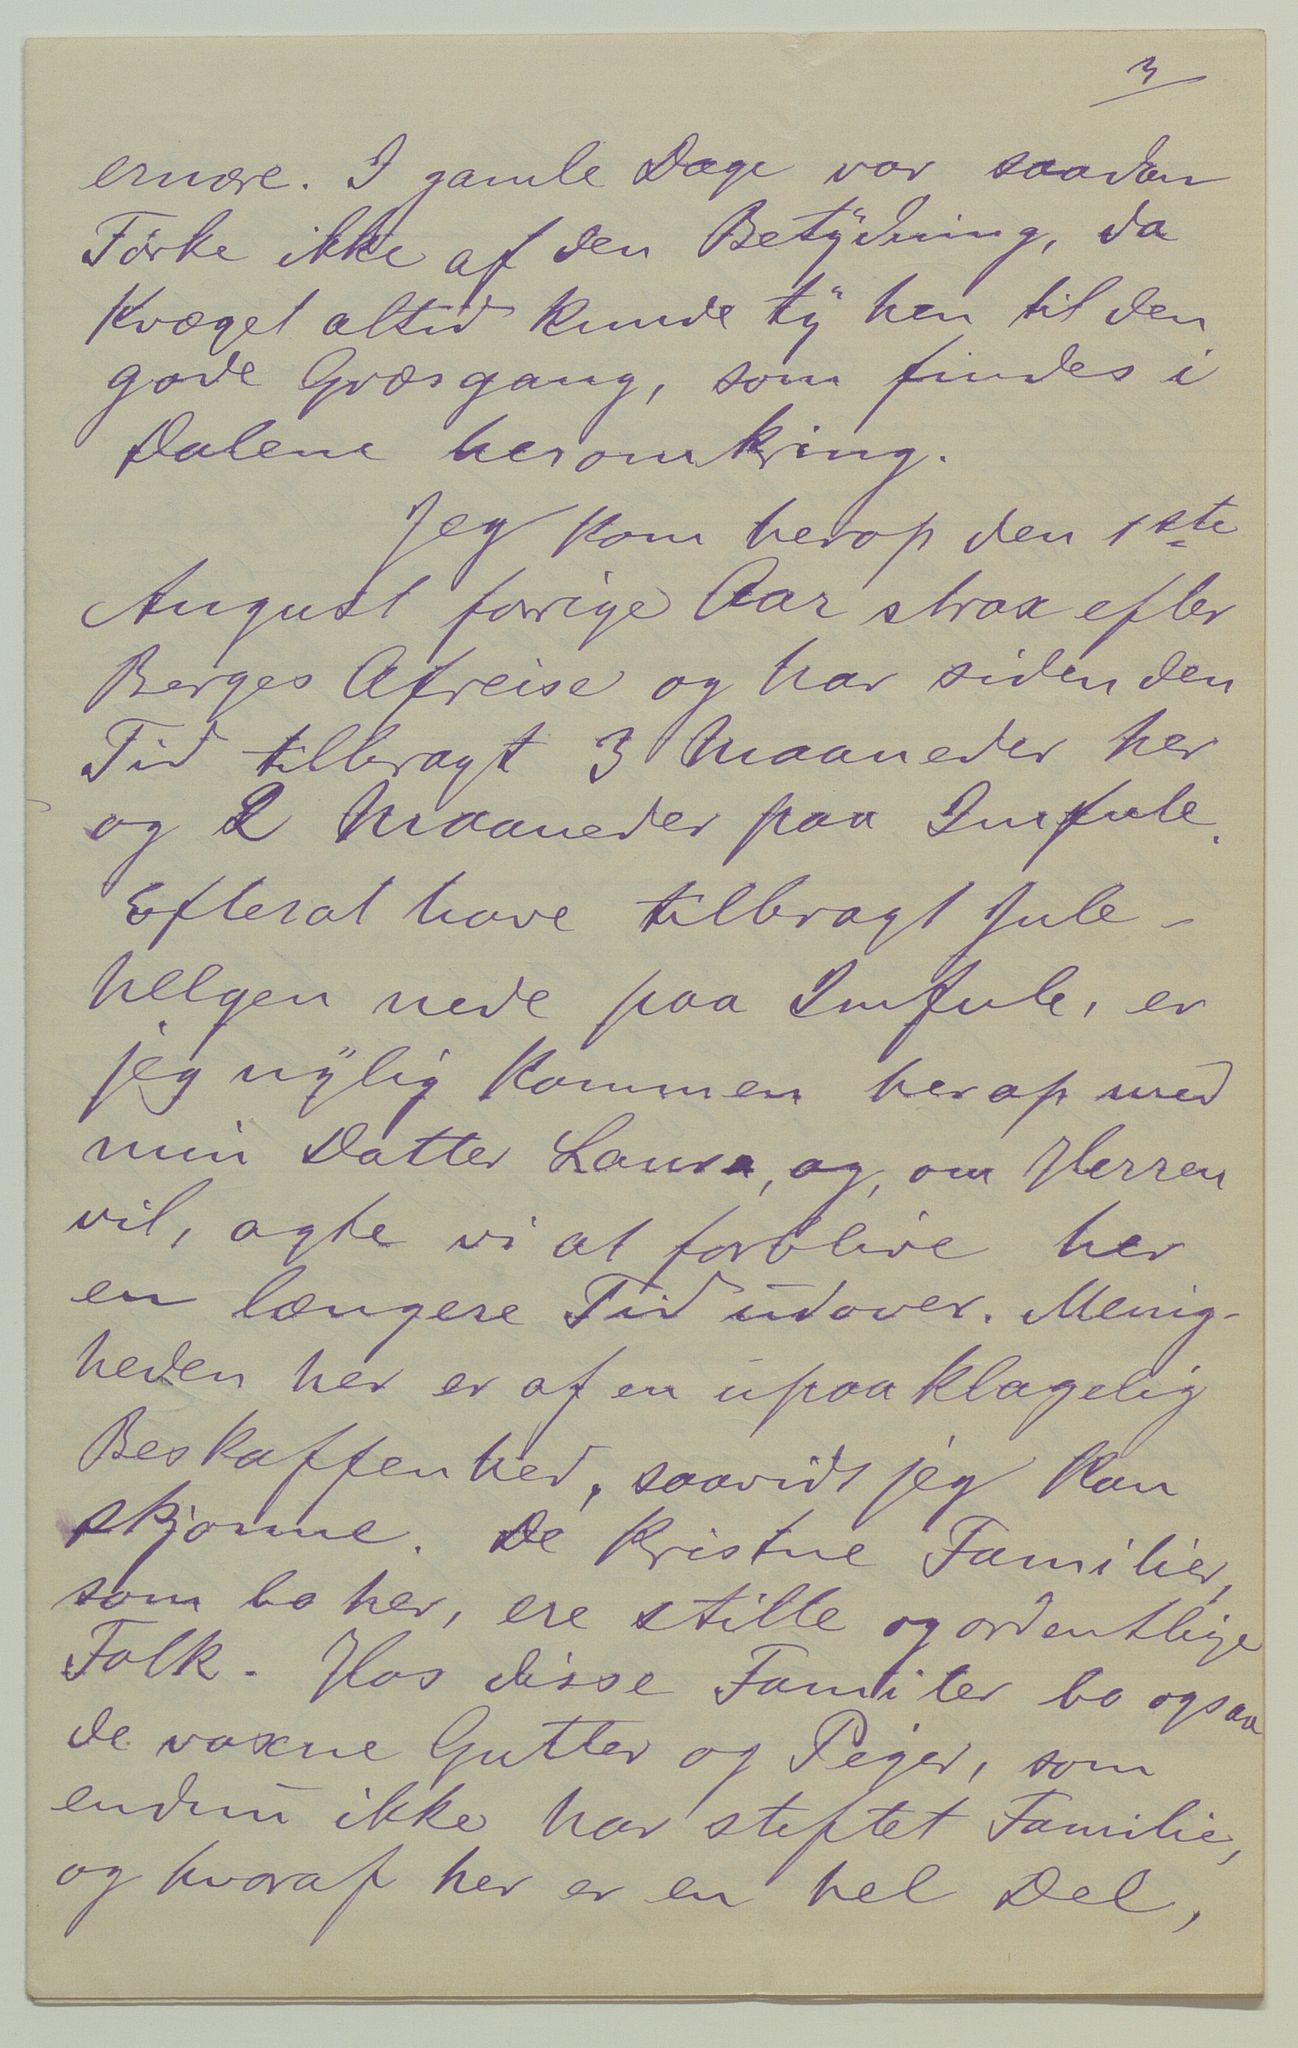 3
ernære. I gamle Dage var saadan
Tørke ikke af den Betydning, da
Kvæget altid kunde ty hen til den
gode Græsgang, som findes i
Dalene heromkring.
Jeg kom herop den 1ste
August forrige Aar strax efter
Berges Afreise og har siden den
Tid tilbragt 3 Maaneder her
og 2 Maaneder paa Imfule.
Efterat have tilbragt Jule-
helgen nede paa Imfule, er
jeg nylig kommen herop med
min Datter Laura, og, om Herren
vil, agte vi at forblive her
en længere Tid udover. Menig-
heden her er af en upaaklagelig
Beskaffenhed, saavidt jeg kan
skjønne. De kristne Familier,
som bo her, ere stille og ordentlige
Folk. Hos disse Familer bo ogsaa
de voxne Gutter og Piger, som
endnu ikke har stiftet Familie,
og hvoraf her er en hel Del,